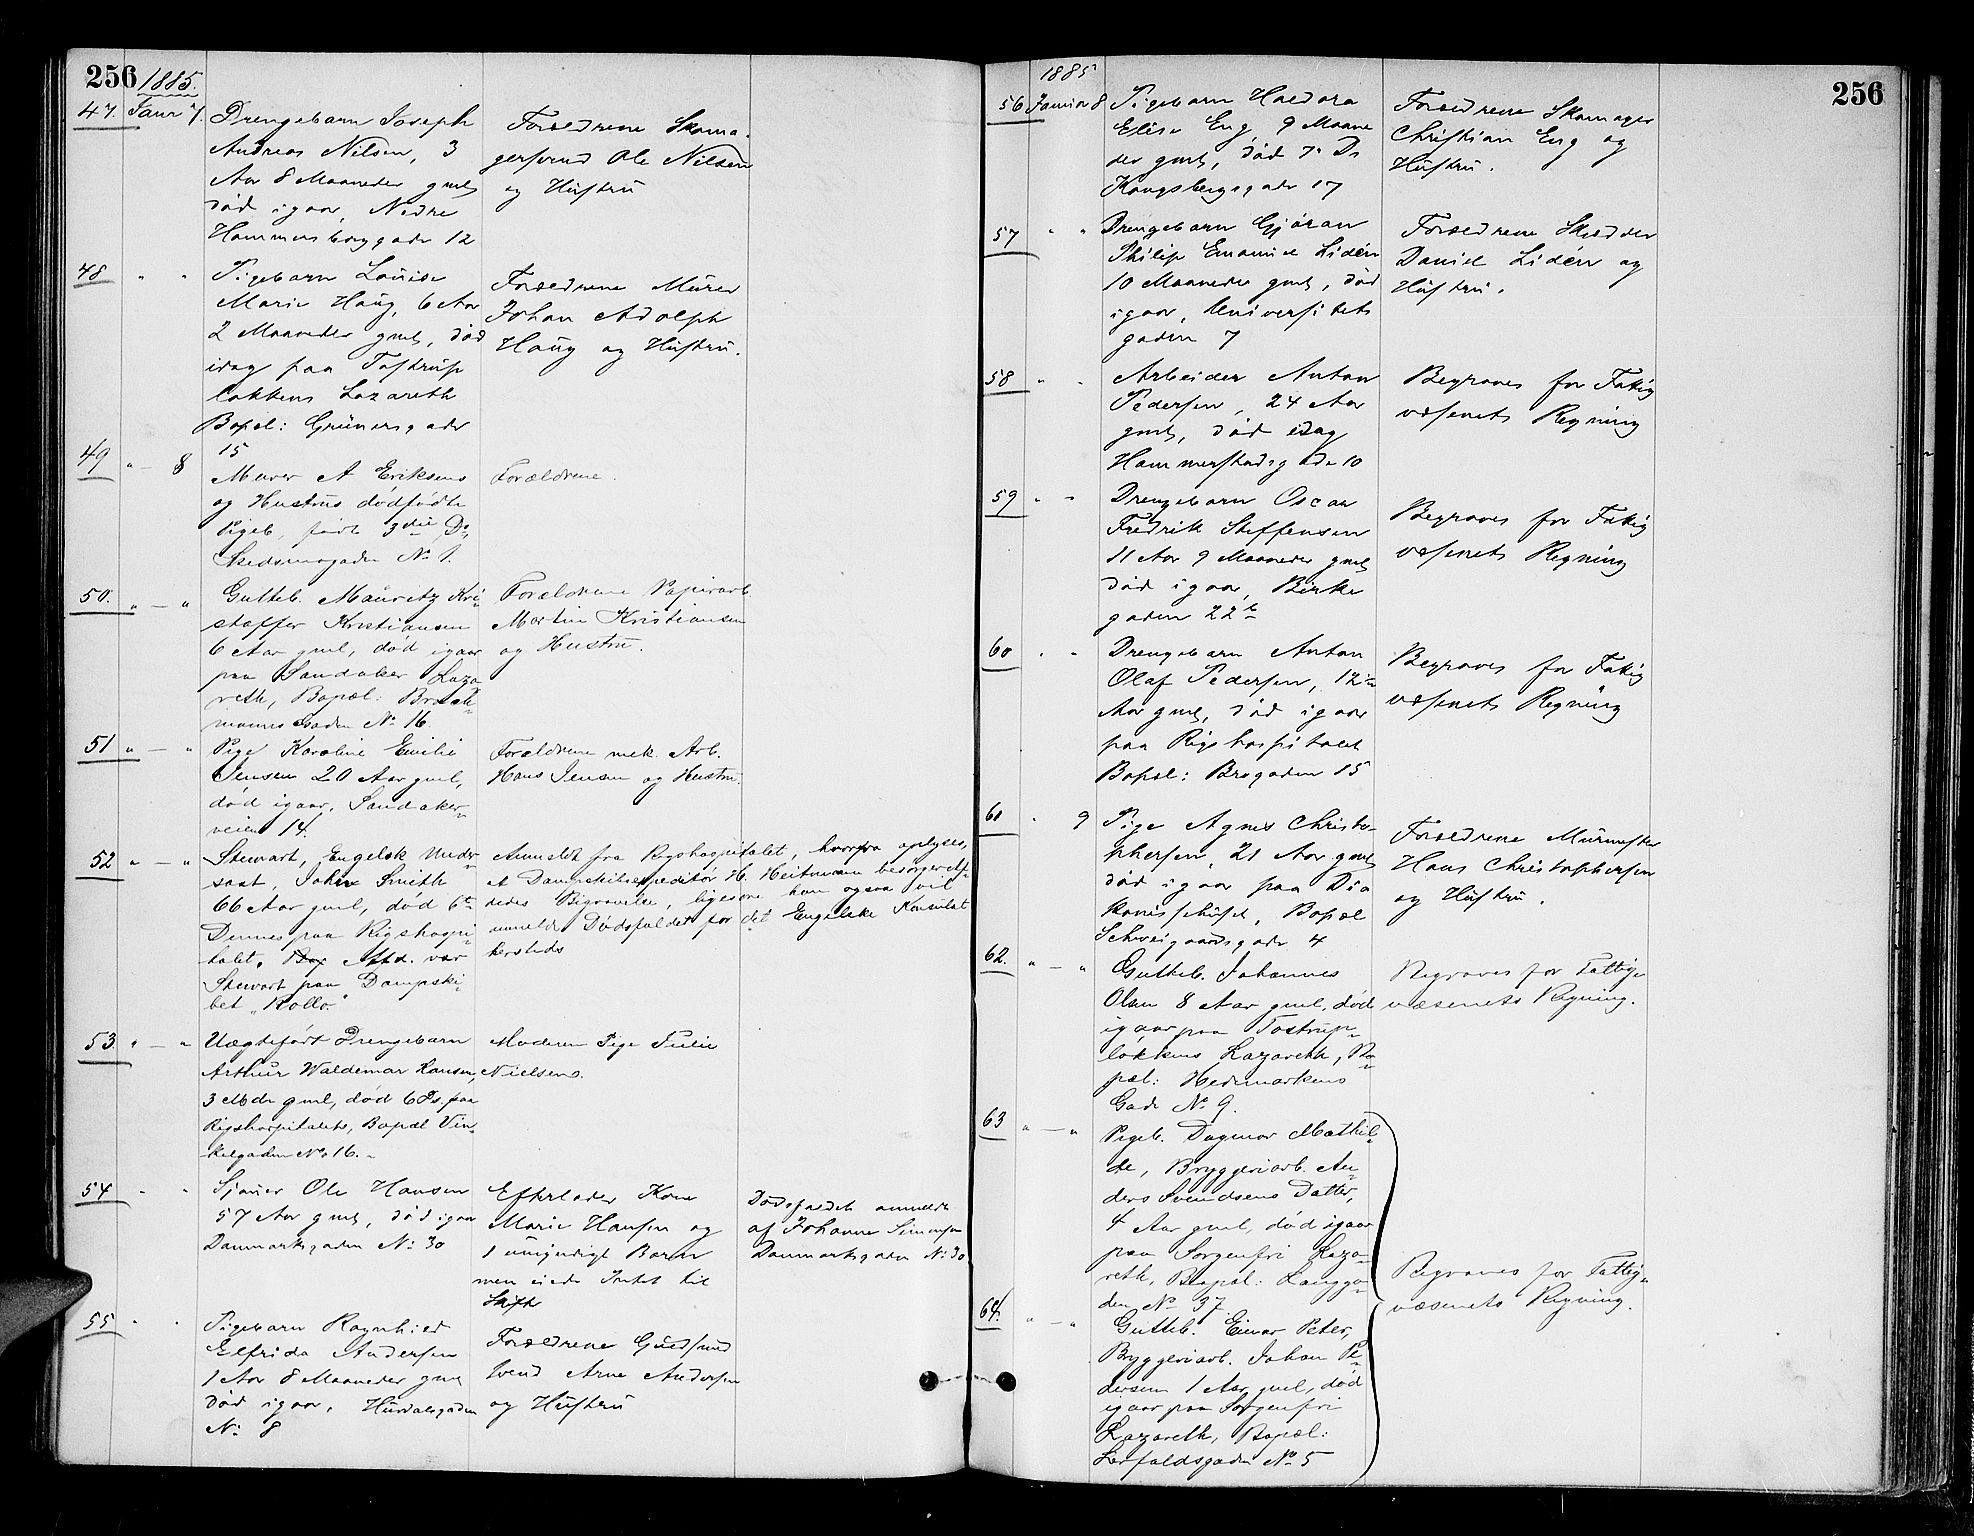 256 1885.
47. Janr 7. Drengebarn Joseph
Andreas Nilsen, 3
Aar 8 Maaneder gml
død igaar, Nedre
Hammersborggade 12
Forældrene Skoma-
gersvend Ole Nilsen
og Hustru
48 " " Pigebarn Louise
Marie Haug, 6 Aar
2 Maaneder gml, død
idag paa Tostrup
løkkens Lazareth
Bopæl: Grünersgade
15
Forældrene Murer
Johan Adolph
Haug og Hustru.
49 " — 8 Murer A Eriksens
og Hustrus dødfødte
Pigeb, født 3die Ds
Skedsmogaden No 1.
Forældrene.
50. " — " Gutteb. Mauritz Kri-
stoffer Kristiansen
6 Aar gml, død igaar
paa Sandaker Laza-
reth, Bopæl:
manns Gaden No 16.
Forældrene Papirarb
Martin Kristiansen
og Hustru.
51 " — " Pige Karoline Emilie
Jensen 20 Aar gml,
død igaar, Sandaker-
veien 14.
Forældrene mek. Arb.
Hans Jensen og Hustru
52 " — " Stewart, Engelsk Under
saat, John Smith
66 Aar gml, død 6te
Dennes paa Rigshospi-
talet. Bop Afd. var
Stewart paa Dampski-
bet "Rollo."
Anmeldt fra Rigshospitalet, hvorfra oplyses,
at Dampskibsexpeditør H. Heitmann besørger Af-
dødes Begravelse, ligesom han ogsaa vil
anmelde Dødsfaldet for det Engelske Konsulat
hersteds
53. " — " Uægtefødt Drengebarn
Arthur Waldemar Hansen,
3 Mdr gml, død 6 Ds. paa
Rigshospitalet, Bopæl Vin-
kelgaden No 16.
Moderen Pige Julie
Nielsen.
54 " " Sjauer Ole Hansen
57 Aar gml, død igaar
Danmarksgaden No 30
Efterlader Kone
Marie Hansen og
1 umyndigt Barn
men eiede Intet til
Skifte
Dødsfaldet anmeldt
af Johanne Simensen
Danmarksgaden No 30
55 " " Pigebarn Ragnhild
Elfrida Andersen
1 Aar 8 Maaneder gml
død igaar, Hurdalsgaden
No 8
Forældrene Guldsmed
svend Arne Andersen
og Hustru
1885 256
56 Januar 8 Pigebarn Haldora
Elise Eng, 9 Maane
der gml, død 7. Ds
Kongsbergsgade 17
Forældrene Skomager
Christian Eng og
Hustru.
57 " " Drengebarn Gjøran
Philip Emanuel Lidén
10 Maaneder gml, død
igaar, Universitets
gaden 7
Forældrene Skrædder
Daniel Lidén og
Hustru.
58 " " Arbeider Anton
Pedersen, 24 Aar
gml, død idag
Hammerstadsgade 10
Begraves for Fattig
væsenets Regning
59 " " Drengebarn Oscar
Fredrik Steffensen
11 Aar 9 Maaneder gml
død igaar, Birke
gaden 22b
Begraves for Fattig
væsenets Regning
60 " " Drengebarn Anton
Olaf Pedersen, 12
Aar gml, død igaar
paa Rigshospitalet
Bopæl: Brogaden 15
Begraves for Fattig
væsenets Regning
61 " 9 Pige Agnes Christo-
phersen, 21 Aar gml
død igaar paa Dia
konissehuset, Bopæl
Schweigaardsgade 4
Forældrene Murmester
Hans Christophersen
og Hustru.
62. " — " Gutteb. Johannes
Olsen 8 Aar gml, død
igaar paa Tostrup-
løkkens Lazareth, Bo-
pæl: Hedemarkens
Gade No 9.
Begraves for Fattig-
væsenets Regning.
63 " — " Pigeb. Dagmar Mathil-
de, Bryggeriarb. An-
ders Svendsens Datter,
4 Aar gml, død igaar
paa Sorgenfri Laza-
reth, Bopæl: Langga-
den No 37
64. " — " Gutteb. Einar Peter,
Bryggeriarb. Johan Pe-
dersen 1 Aar gml, død
igaar paa Sorgenfri
Lazareth, Bopæl:
Lerfaldsgaden No 5
Begraves for Fattig-
væsenets Regning.